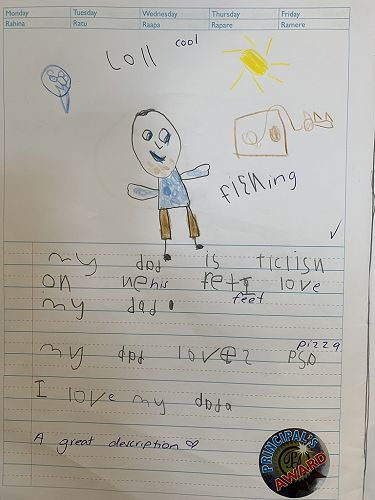 Monday Tuesday Wednesday Thursday Friday
Rāhina Rātū Rāapa Rāpare Rāmere
cool
Loll
fishing
my dad is ticlish
on hehis fet I love
feet
my dad.
pizza
my dad loves PSO
I love my dada
A great description
PRINCIPAL'S
AWARD